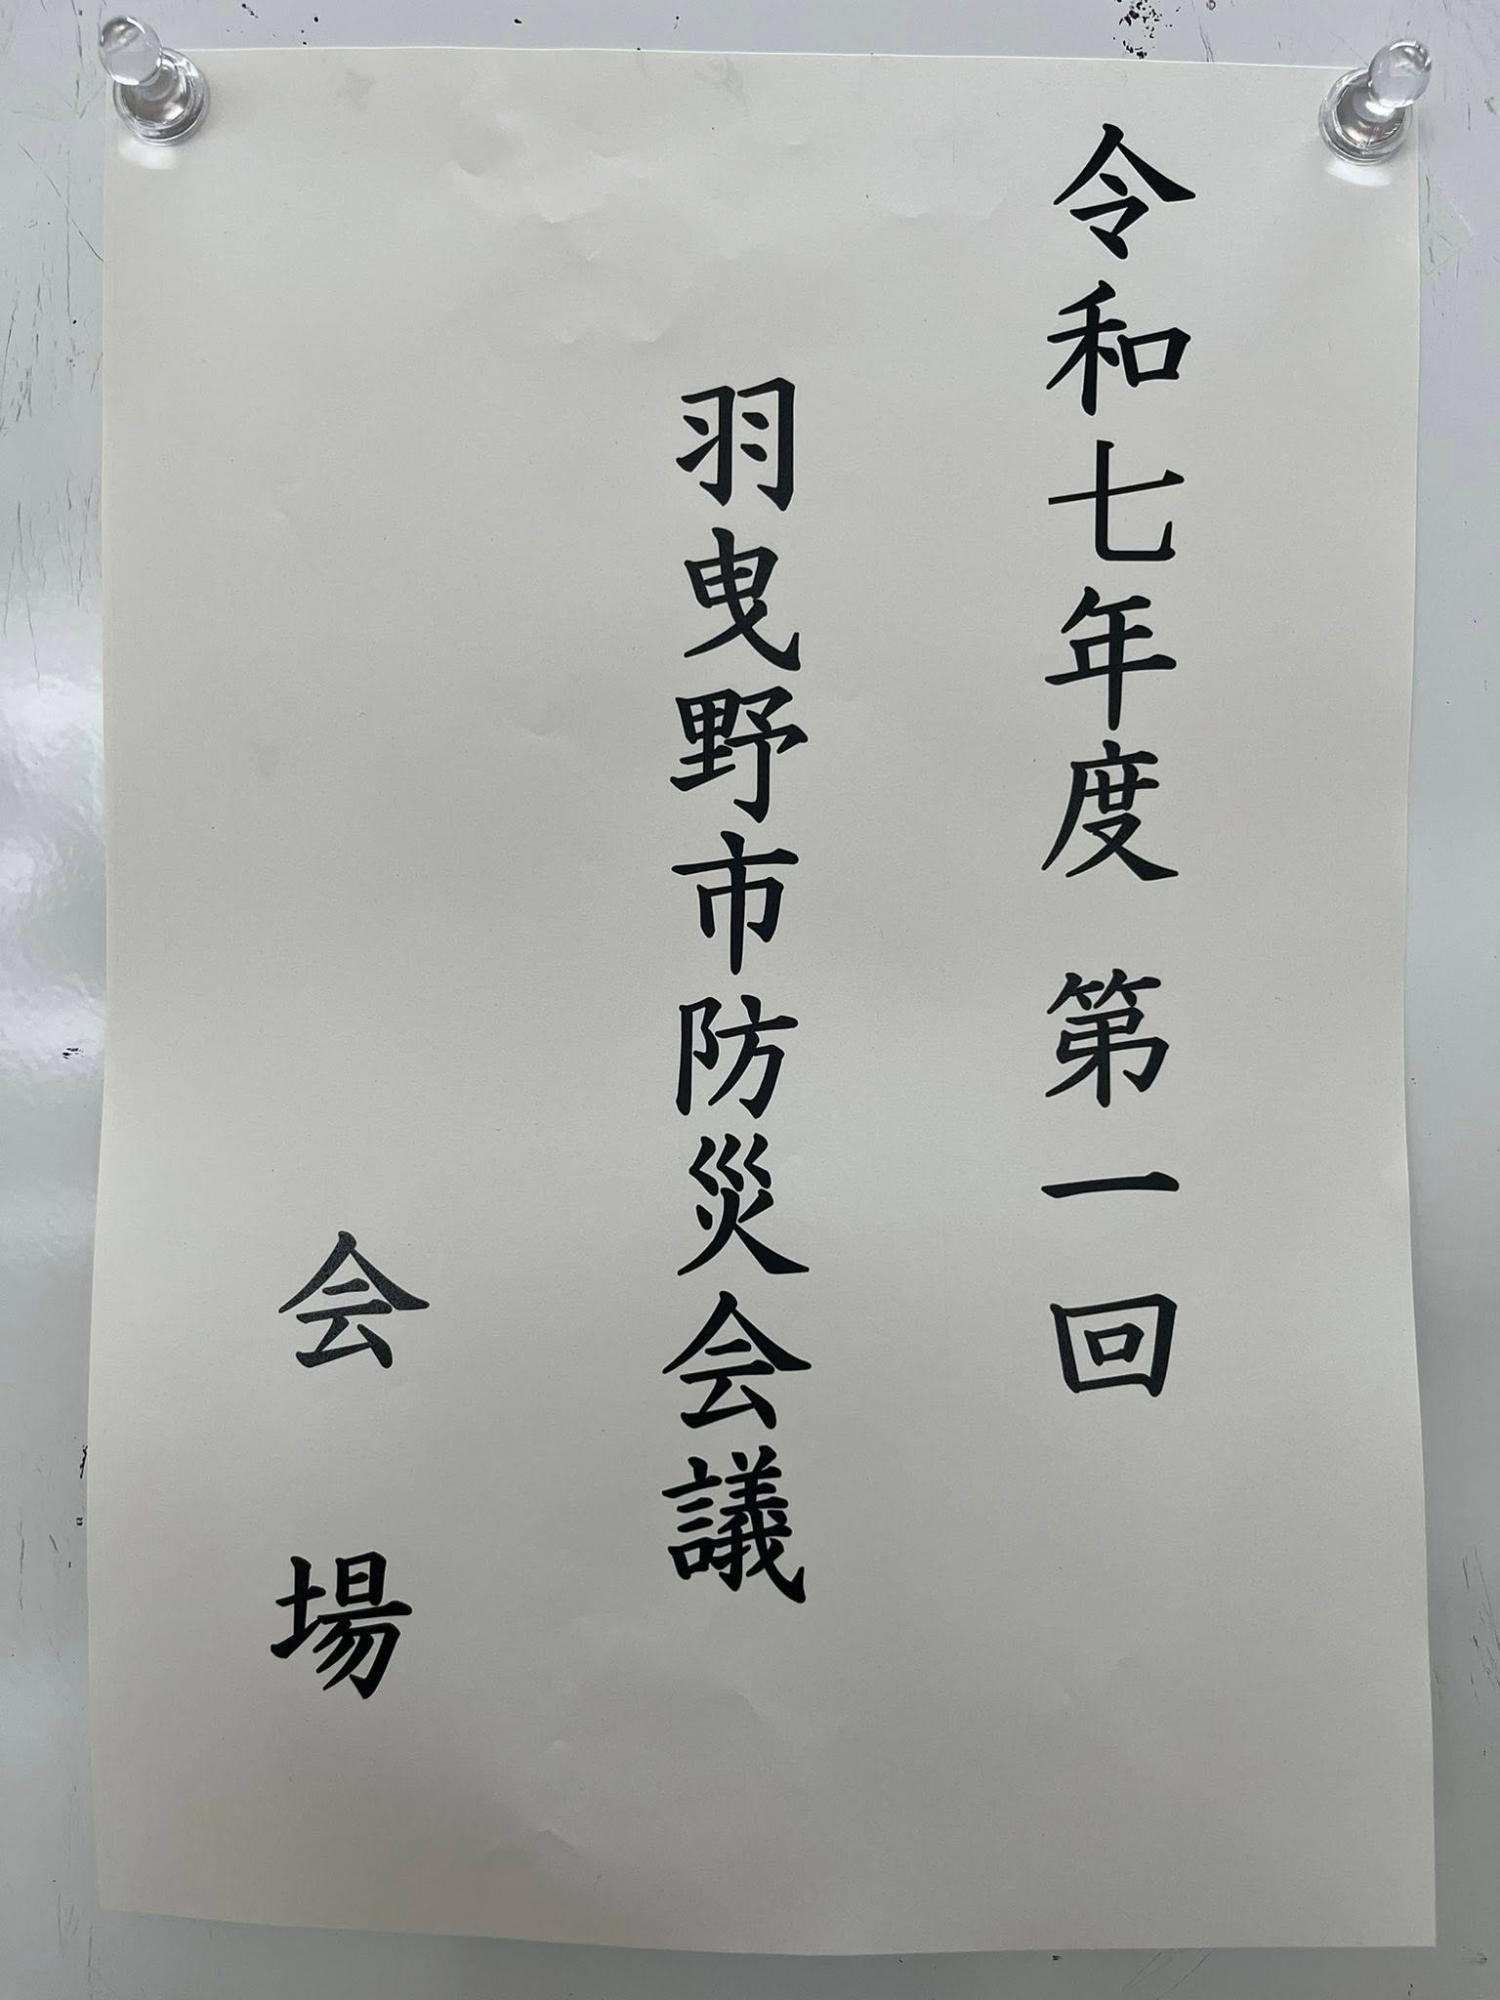 令和七年度 第一回
羽曳野市防災会議
会場